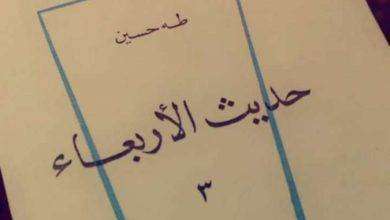 طه حسين
حديث الأربعاء
٣